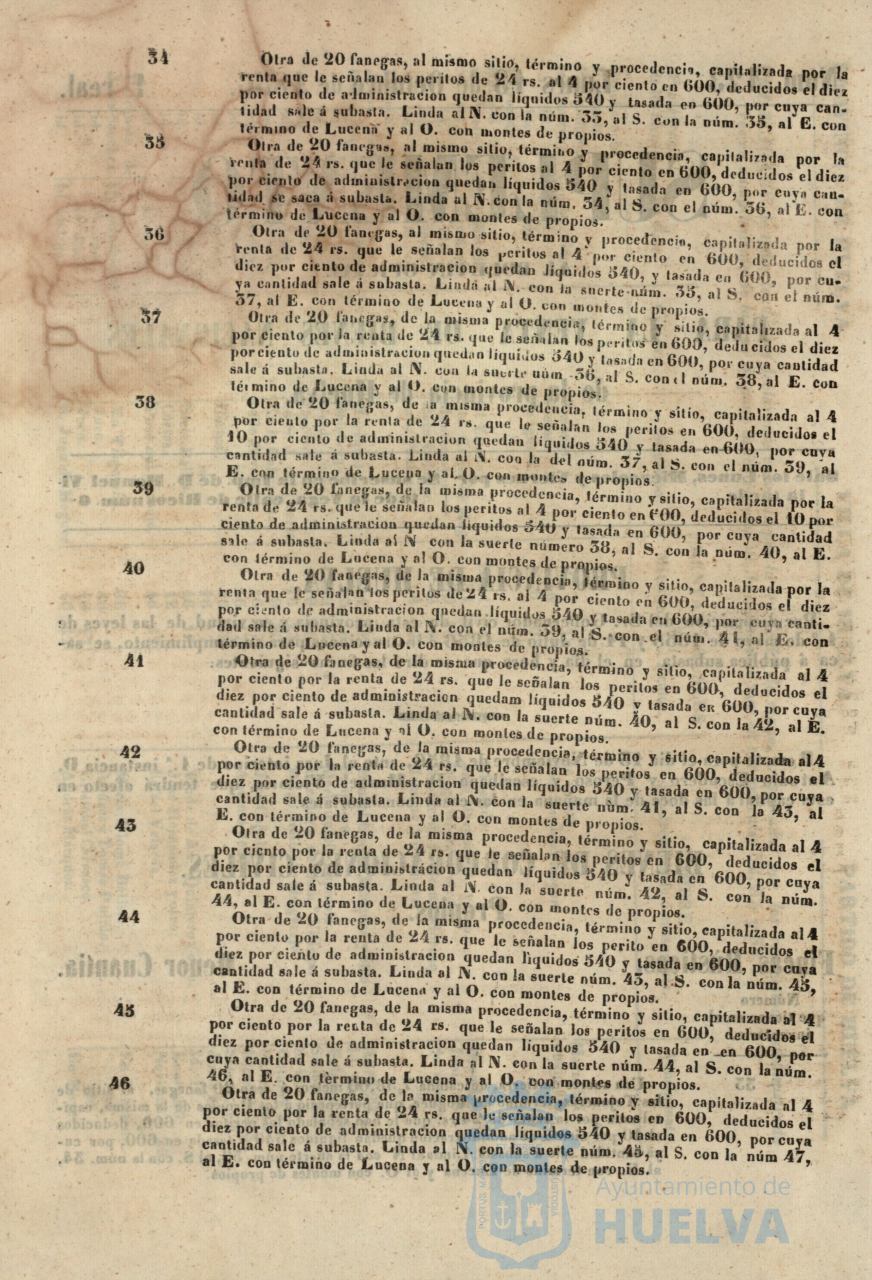 34 Otra de 20 fanegas, al mismo sitio, término y procedencia, capitalizada por la
renta que le señalan los peritos de 24 rs. al 4 por ciento en 600, deducidos el diez
por ciento de administracion quedan líquidos 540 y tasada en 600, por cuya can-
tidad sale á subasta. Linda al N. con la núm. 33, al S. con la núm. 35, al E. con
término de Lucena y al O. con montes de propios.
35 Otra de 20 fanegas, al mismo sitio, término y procedencia, capitalizada por la
renta de 24 rs. que le señalan los peritos al 4 por ciento en 600, deducidos el diez
por ciento de administracion quedan líquidos 540 y tasada en 600, por cuya can-
tidad se saca á subasta. Linda al N. con la núm. 34, al S. con el núm. 36, al E. con
término de Lucena y al O. con montes de propios.
36 Otra de 20 fanegas, al mismo sitio, término y procedencia, capitalizada por la
renta de 24 rs. que le señalan los peritos al 4 por ciento en 600, deducidos el
diez por ciento de administracion quedan líquidos 540, y tasada en 600, por cu-
ya cantidad sale á subasta. Linda al N. con la suerte núm. 35, al S. con el núm.
37, al E. con término de Lucena y al O. con montes de propios.
37 Otra de 20 fanegas, de la misma procedencia, término y sitio, capitalizada al 4
por ciento por la renta de 24 rs. que le señalan los peritos en 600, deducidos el diez
por ciento de administracion quedan líquidos 540 y tasada en 600, por cuya cantidad
sale á subasta. Linda al N. con la suerte núm 36, al S. con el núm. 38, al E. con
término de Lucena y al O. con montes de propios.
38 Otra de 20 fanegas, de la misma procedencia, término y sitio, capitalizada al 4
por ciento por la renta de 24 rs. que le señalan los peritos en 600, deducidos el
10 por ciento de administracion quedan líquidos 540 y tasada en 600, por cuya
cantidad sale á subasta. Linda al N. con la del núm. 37, al S. con el núm. 39, al
E. con término de Lucena y al O. con montes de propios.
39 Otra de 20 fanegas, de la misma procedencia, término y sitio, capitalizada por la
renta de 24 rs. que le señalan los peritos al 4 por ciento en 600, deducidos el 10 por
ciento de administracion quedan líquidos 540 y tasada en 600, por cuya cantidad
sale á subasta. Linda al N con la suerte número 38, al S. con la núm. 40, al E.
con término de Lucena y al O. con montes de propios.
40 Otra de 20 fanegas, de la misma procedencia, término y sitio, capitalizada por la
renta que le señalan los peritos de 24 rs. al 4 por ciento en 600, deducidos el diez
por ciento de administracion quedan líquidos 540 y tasada en 600, por cuya canti-
dad sale á subasta. Linda al N. con el núm. 39, al S. con el núm. 41, al E. con
término de Lucena y al O. con montes de propios.
41 Otra de 20 fanegas, de la misma procedencia, término y sitio, capitalizada al 4
por ciento por la renta de 24 rs. que le señalan los peritos en 600, deducidos el
diez por ciento de administracion quedam líquidos 540 y tasada en 600, por cuya
cantidad sale á subasta. Linda al N. con la suerte núm. 40, al S. con la 42, al E.
con término de Lucena y al O. con montes de propios.
42 Otra de 20 fanegas, de la misma procedencia, término y sitio, capitalizada al 4
por ciento por la renta de 24 rs. que le señalan los peritos en 600, deducidos el
diez por ciento de administracion quedan líquidos 540 y tasada en 600, por cuya
cantidad sale á subasta. Linda al N. con la suerte núm. 41, al S. con la 43, al
E. con término de Lucena y al O. con montes de propios.
43 Otra de 20 fanegas, de la misma procedencia, término y sitio, capitalizada al 4
por ciento por la renta de 24 rs. que le señalan los peritos en 600, deducidos el
diez por ciento de administracion quedan líquidos 540 y tasada en 600, por cuya
cantidad sale á subasta. Linda al N. con la suerte núm. 42, al S. con la núm.
44, al E. con término de Lucena y al O. con montes de propios.
44 Otra de 20 fanegas, de la misma procedencia, término y sitio, capitalizada al 4
por ciento por la renta de 24 rs. que le señalan los perito en 600, deducidos el
diez por ciento de administracion quedan líquidos 540 y tasada en 600, por cuya
cantidad sale á subasta. Linda al N. con la suerte núm. 43, al S. con la núm. 45,
al E. con término de Lucena y al O. con montes de propios.
45 Otra de 20 fanegas, de la misma procedencia, término y sitio, capitalizada al 4
por ciento por la renta de 24 rs. que le señalan los peritos en 600, deducidos el
diez por ciento de administracion quedan líquidos 540 y tasada en en 600, por
cuya cantidad sale á subasta. Linda al N. con la suerte núm. 44, al S. con la núm.
46, al E. con término de Lucena y al O. con montes de propios.
46 Otra de 20 fanegas, de la misma procedencia, término y sitio, capitalizada al 4
por ciento por la renta de 24 rs. que le señalan los peritos en 600, deducidos el
diez por ciento de administracion quedan líquidos 540 y tasada en 600, por cuya
cantidad sale á subasta. Linda al N. con la suerte núm. 45, al S. con la núm 47,
al E. con término de Lucena y al O. con montes de propios.
Ayuntamiento de
HUELVA